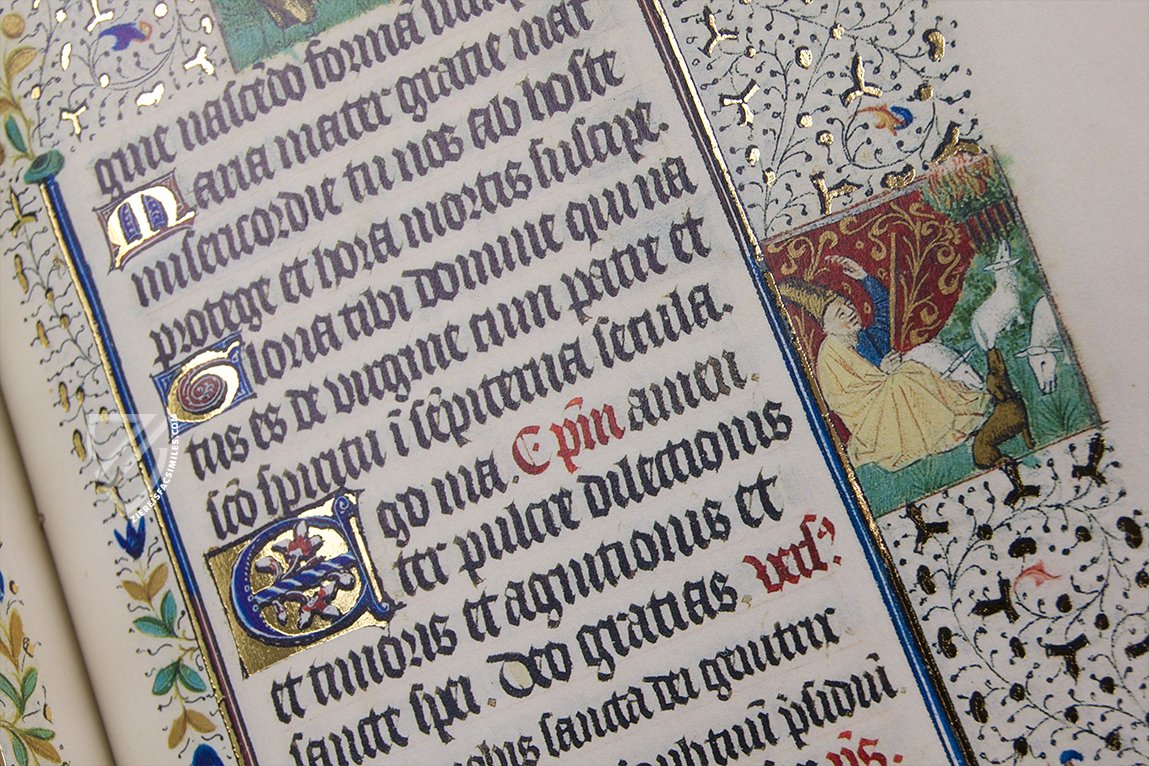 gine nascēdo formā
Maria mater gratie mat
misericordie tu nos ab hoste
protege et hora mortis suscipe.
Gloria tibi domine qui na
tus es de virgine cum patre et
sc̄o spiritu ī sēpiterna secula.
amen. Ep̄m
Ego ma.
ter pulcre dilectionis
et timoris et agnitionis et
sancte spei. Deo gratias vers
nobis sancta dei genitrix
p̄sidiū.
ZIEREISFACSIMILES.COM